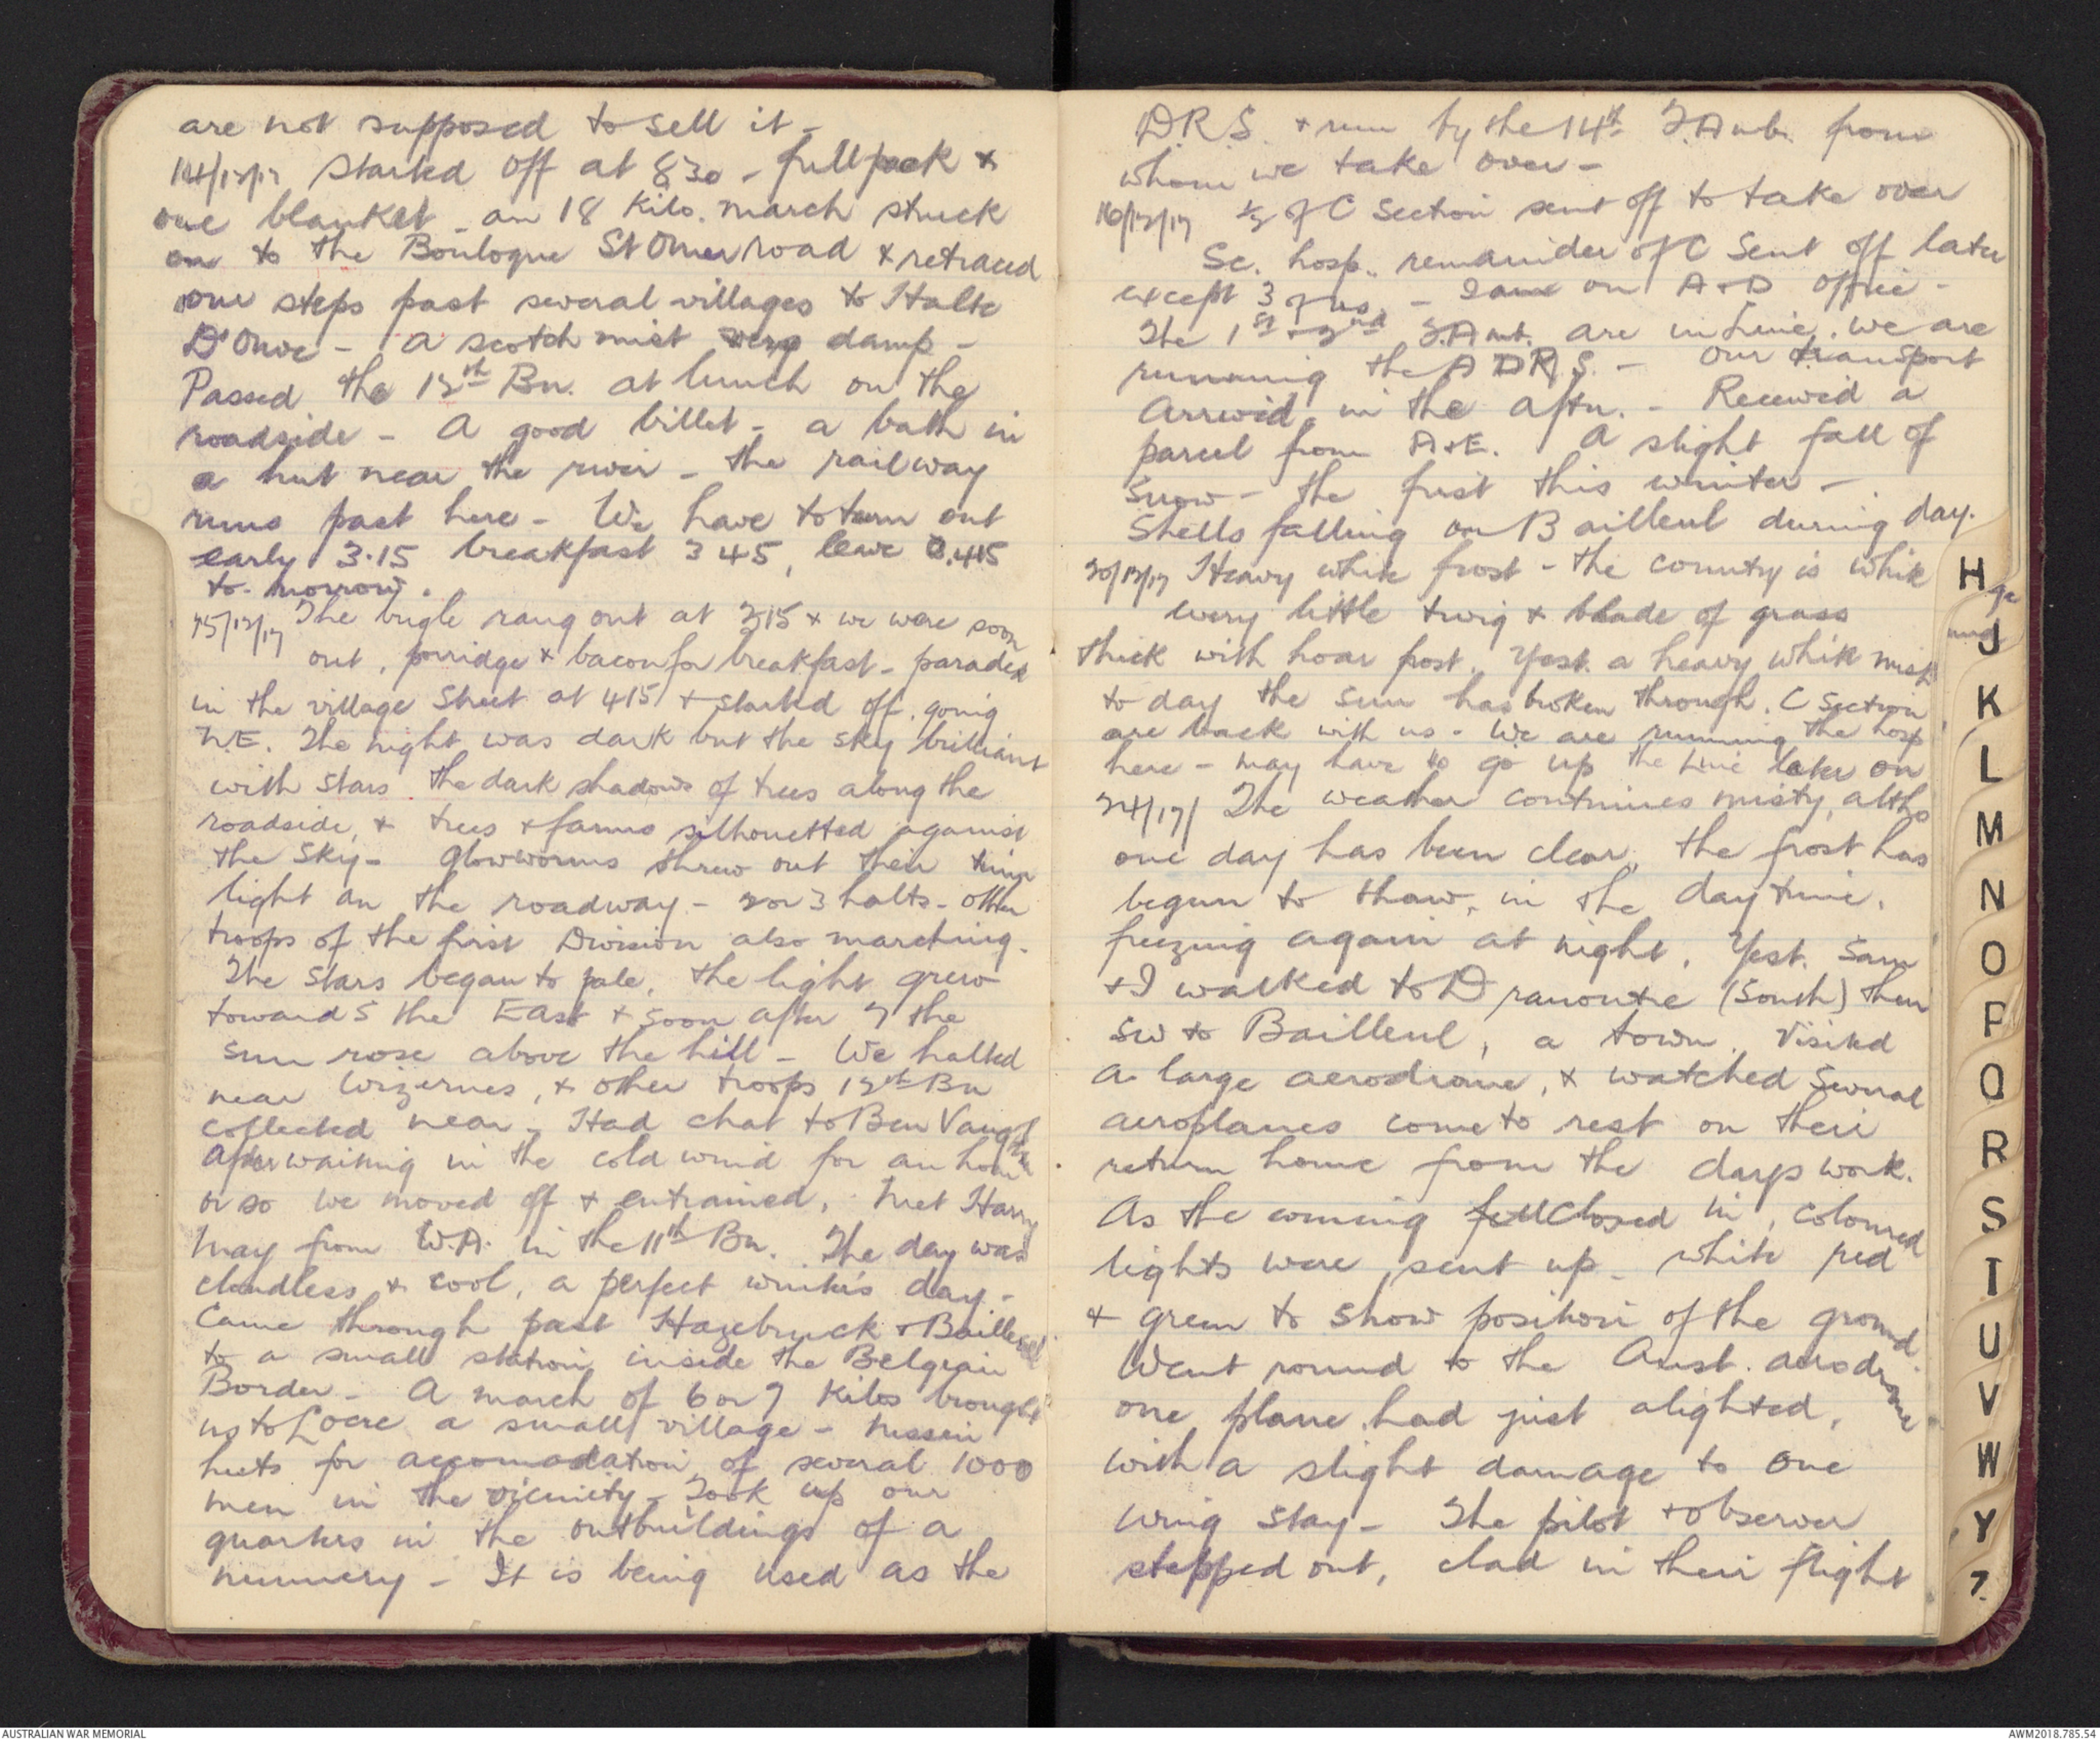 are not supposed to sell it -
14/12/17 Started off at 830 - full pack &
one blanket - an 18 Kilo. march struck
on to the Boulogne St Omer road & retraced
our steps past several villages to Halte
D'Onve - A scotch mist very damp -
Passed the 12th Bn. at lunch on the
roadside - A good billet - a bath in
a hut near the river - the railway
runs past here - We have to turn out
early 3.15 breakfast 3 45, leave 0.415
to-morrow.
15/12/17 The bugle rang out at 315 & we were soon
out, porridge & bacon for breakfast - paraded
in the village street at 415 & started off, going
N.E. The night was dark but the sky brilliant
with stars the dark shadows of trees along the
roadside, & trees & farms silhouetted against
the sky - Glowworms threw out their
light on the roadway - 2 or 3 halts - other
troops of the first Division also marching.
The stars began to pale, the light grew
towards the East & soon after 7 the
sun rose above the hill - We halted
near Wizernes, & other troops 12th Bn
collected near - Had chat to Ben
After waiting in the cold wind for an hour
or so we moved off & entrained, Met Harry
May from W.A. in the 11th Bn. The day was
cloudless & cool, a perfect winter's day -
Came through past Hazebruck & Bailleul
to a small station inside the Belgian
Border - A march of 6 or 7 Kilos brought
us to Locre a small village - Nissen
huts for accomodation of several 1000
men in the vicinity - Took up our
quarters in the outbuildings of a
nunnery - It is being used as the
D.R.S. & run by the 14th F.Amb. from
whom we take over -
16/12/17 ½ of C Section sent off to take over
Sc. hosp., remainder of C Sent off later
except 3 of us - I am on A & D Office -
The 1st & 2nd F.Amb. are in Line. We are
running the A D.R.S. - Our transport
Arrived in the aftn. - Received a
parcel from A & E. A slight fall of
Snow - the first this winter -
Shells falling on Bailleul during day.
20/12/17 Heavy white frost - the country is white
every little twig & blade of grass
thick with hoar frost. Yest. a heavy white mist
to day the sun has broken through. C Section
are back with us - We are running the hosp
here - may have to go up the Line later on
24/12/ The weather continues misty, altho
one day has been clear, the frost has
begun to thaw, in the daytime,
freezing again at night. Yest. Sam
& I walked to Dranoutre (South) then
SW to Bailleul, a town. Visited
a large aerodrome, & watched several
aeroplanes come to rest on their
return home from the days work.
As the evening fell closed in, coloured
lights were sent up - white red
& green to show position of the ground.
Went round to the Aust. aerodrome
one plane had just alighted,
with a slight damage to one
wing stay - The pilot & observer
stepped out, clad in their flight
H
J
K
L
M
N
O
P
Q
R
S
T
U
V
W
Y
?
AUSTRALIAN WAR MEMORIAL
AWM2018.785.54